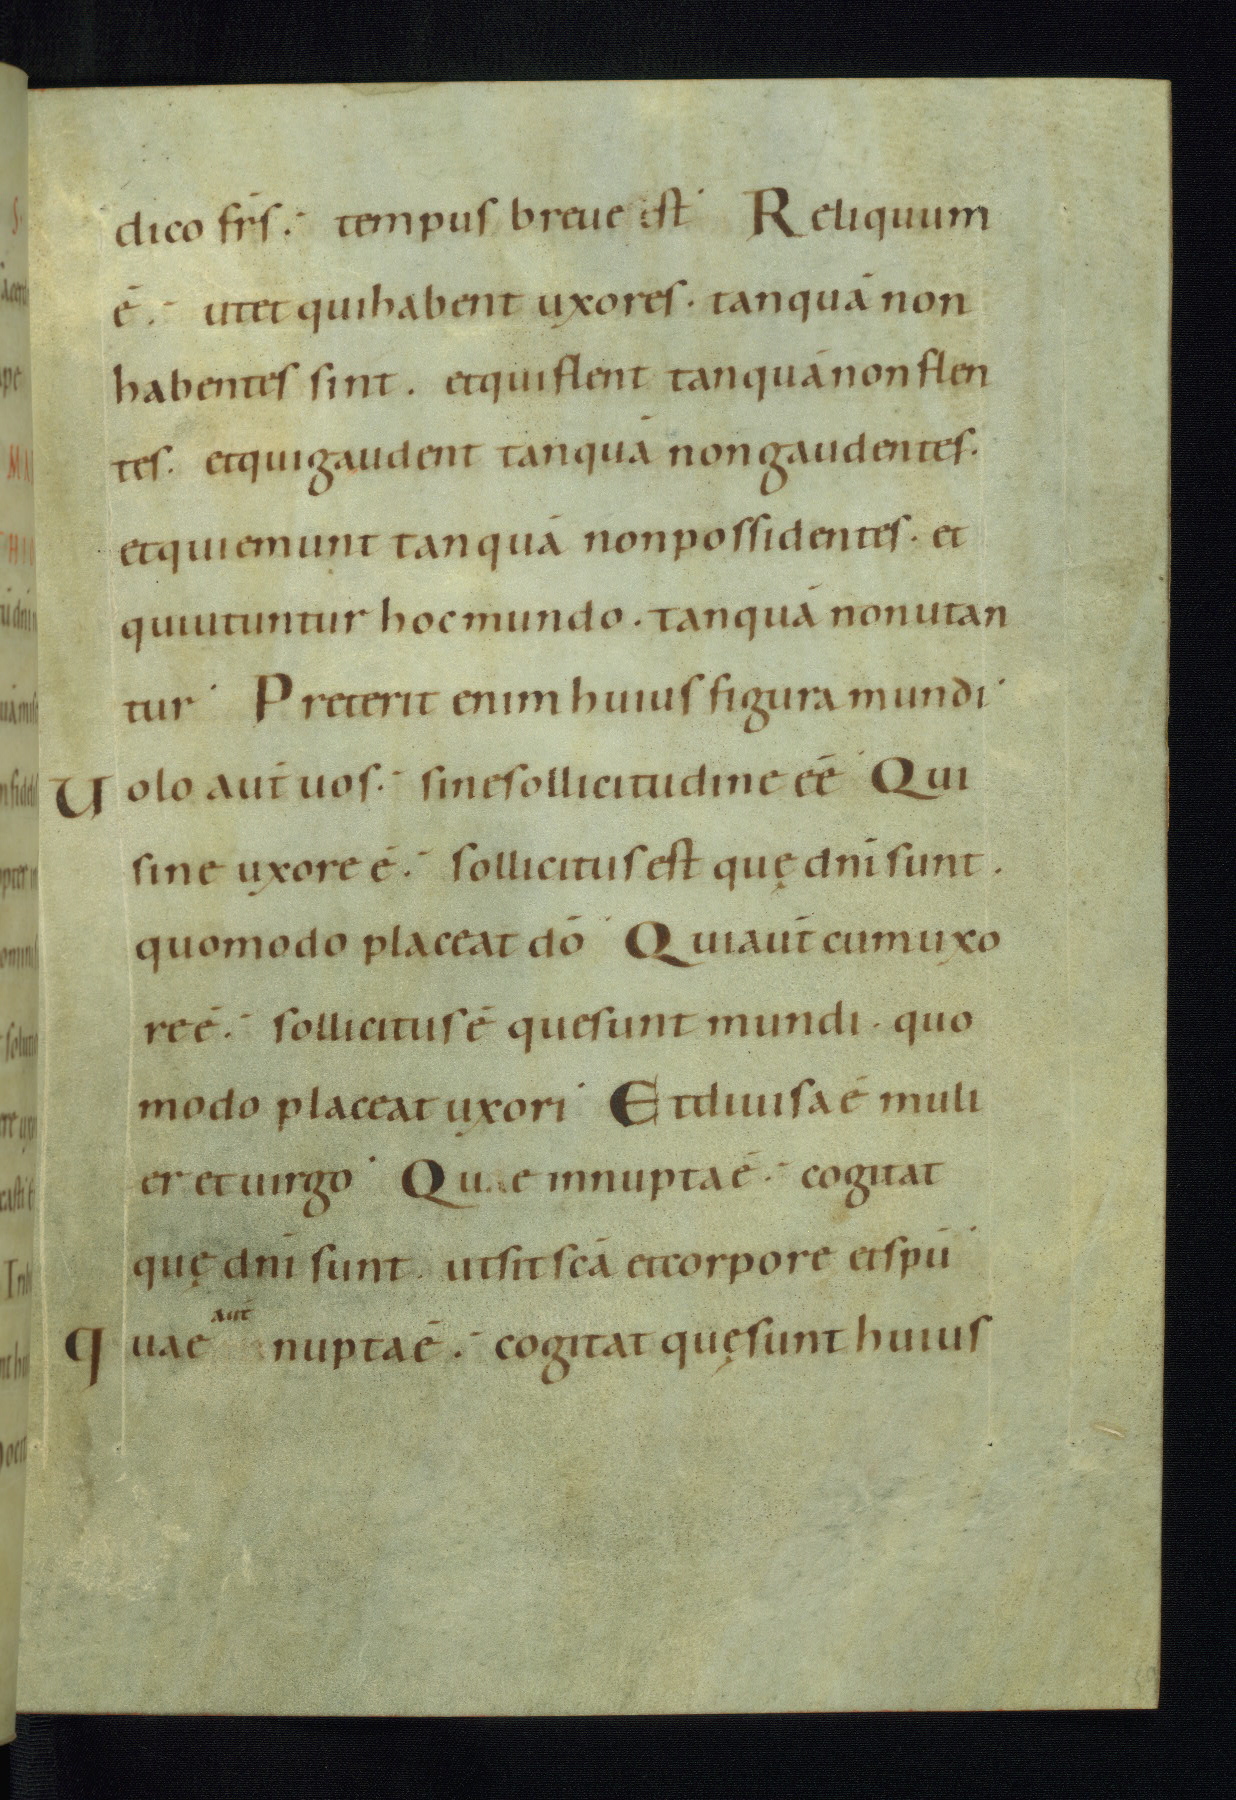 dico fr̄s. tempus breue est Reliquum
ē. utet quihabent uxores. tanquā non
habentes sint. etquiflent tanquānonflen
tes. etquigaudent tanquā nongaudentes.
etquiemunt tanquā nonpossidentes. et
quiutuntur hocmundo. tanquā nonutan
tur Preterit enim huius figura mundi
Uolo aut̄ uos. sinesollicitudine eē Qui
sine uxore ē. sollicitusest quę dn̄i sunt.
quomodo placeat dō Quiaut̄ cumuxo
reē. sollicitusē quesunt mundi. quo
modo placeat uxori Etdiuisa ē muli
er et uirgo Quae innuptaē. cogitat
quę dn̄i sunt. utsit sc̄a etcorpore etspū
quae aut̄ nuptaē. cogitat quęsunt huius